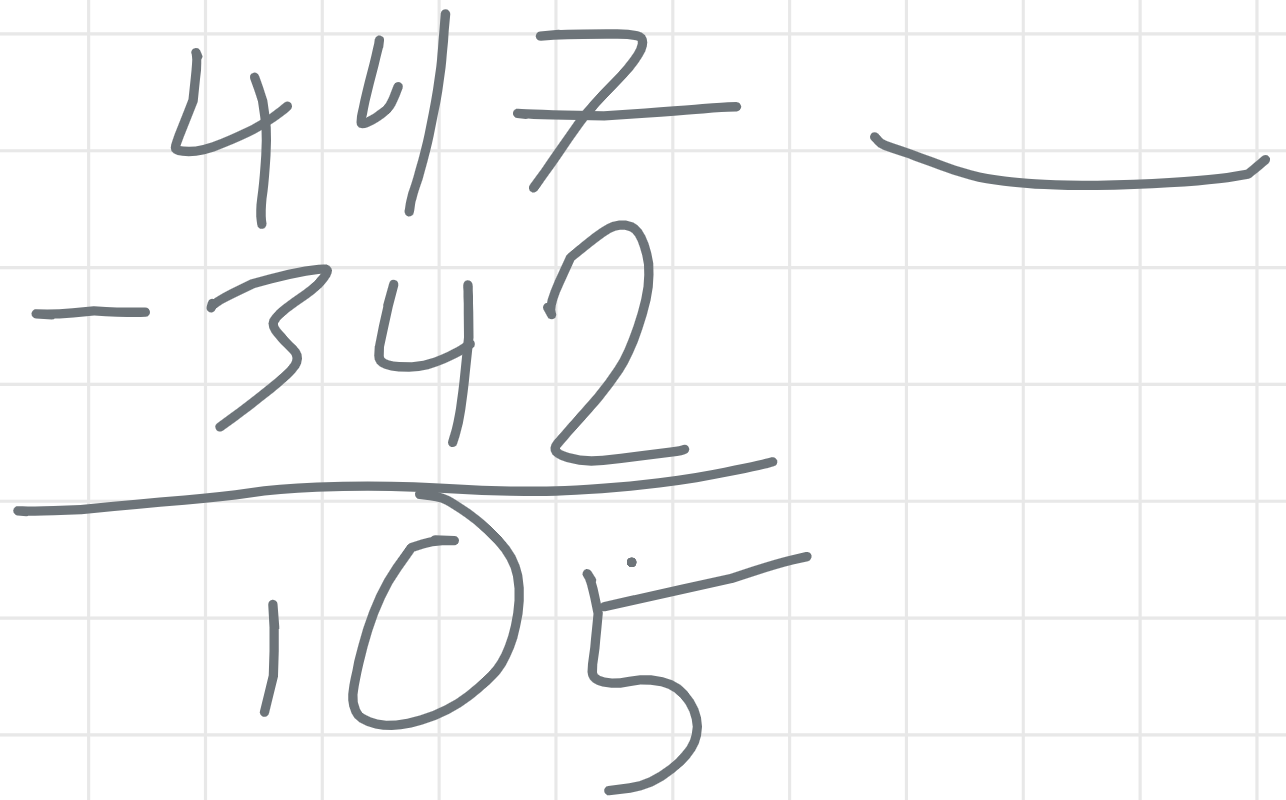 447
- 342
105